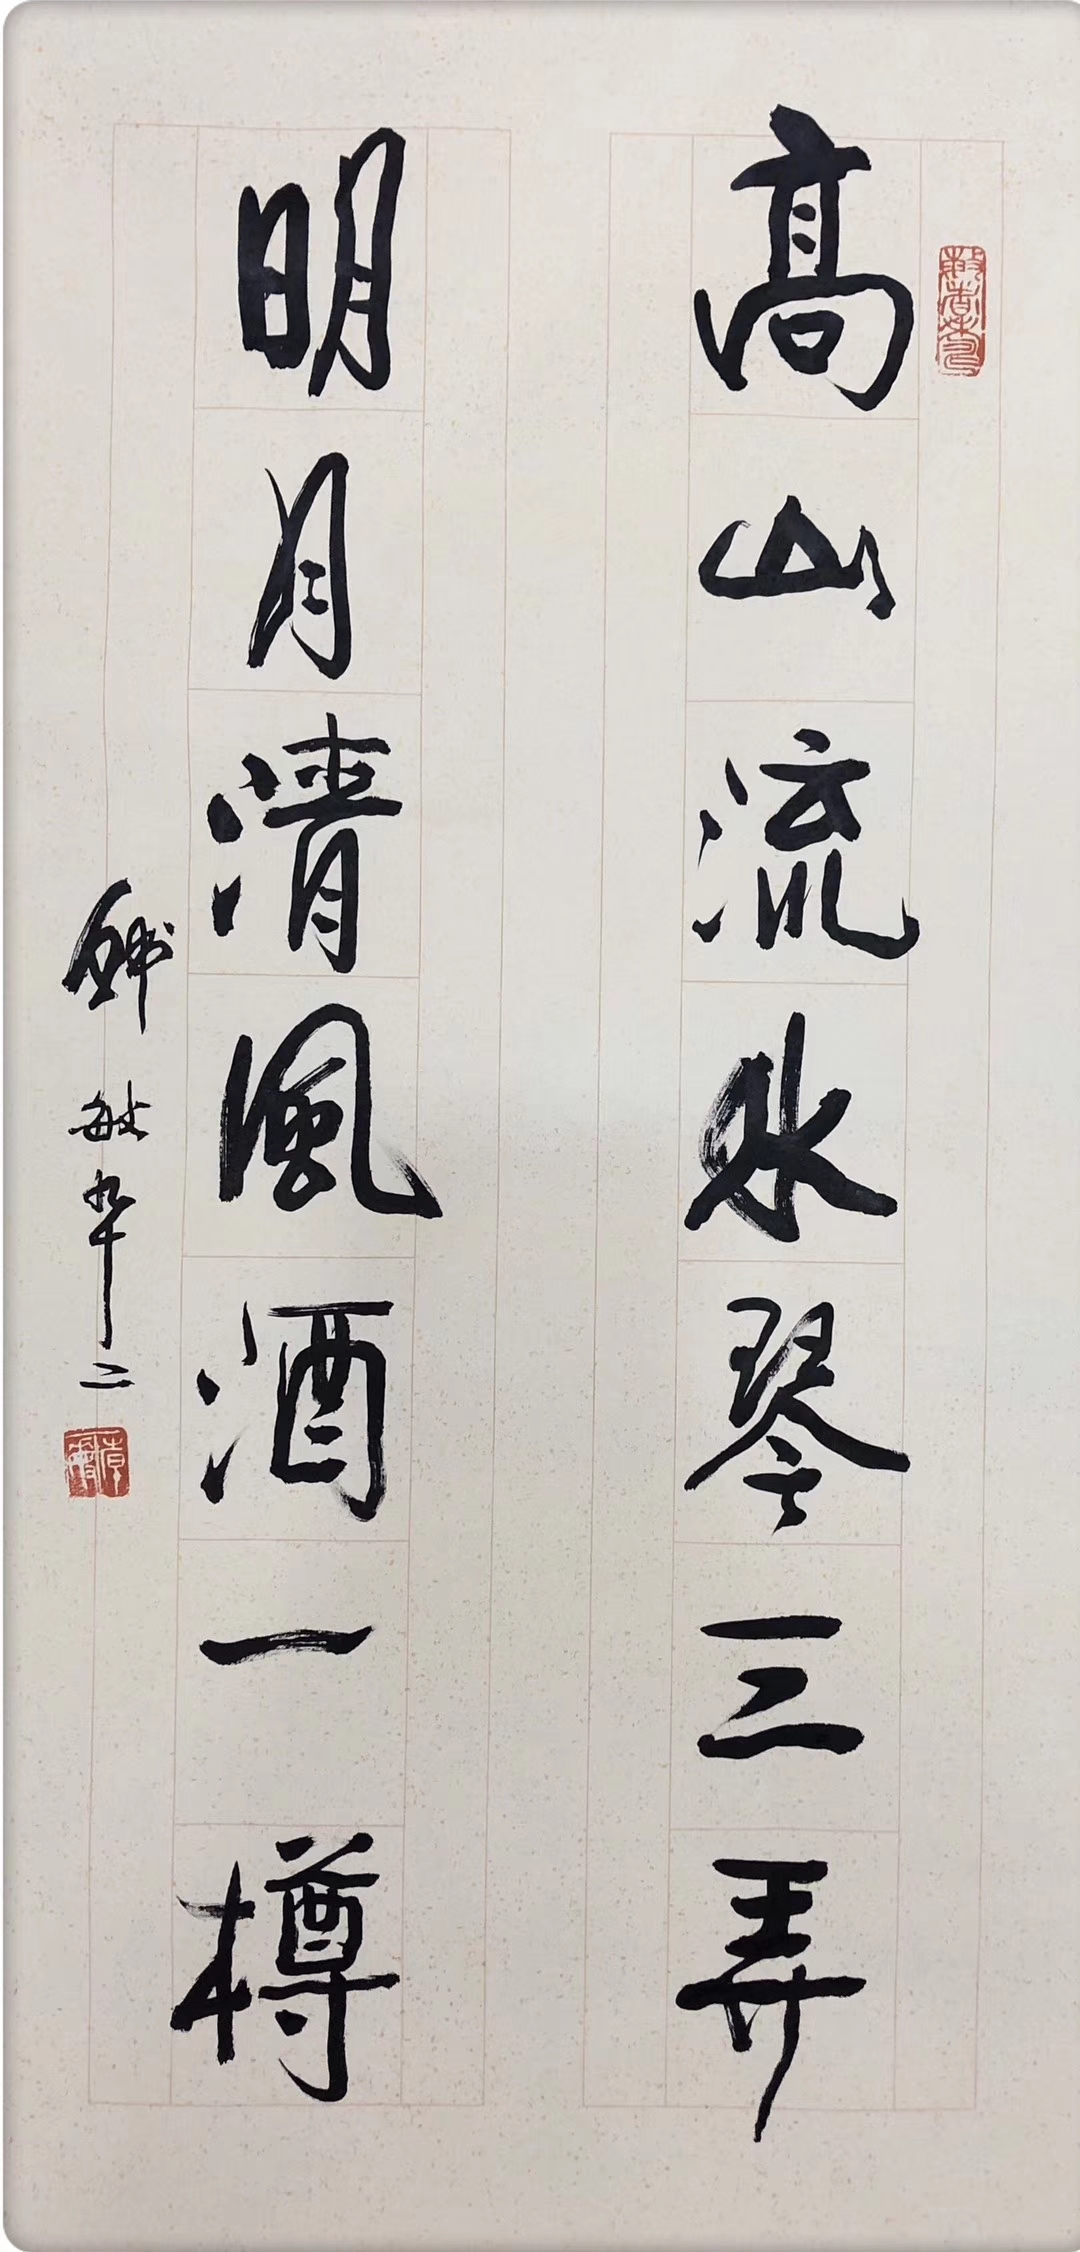 高山流水琴三弄
明月清風酒一樽
敏华